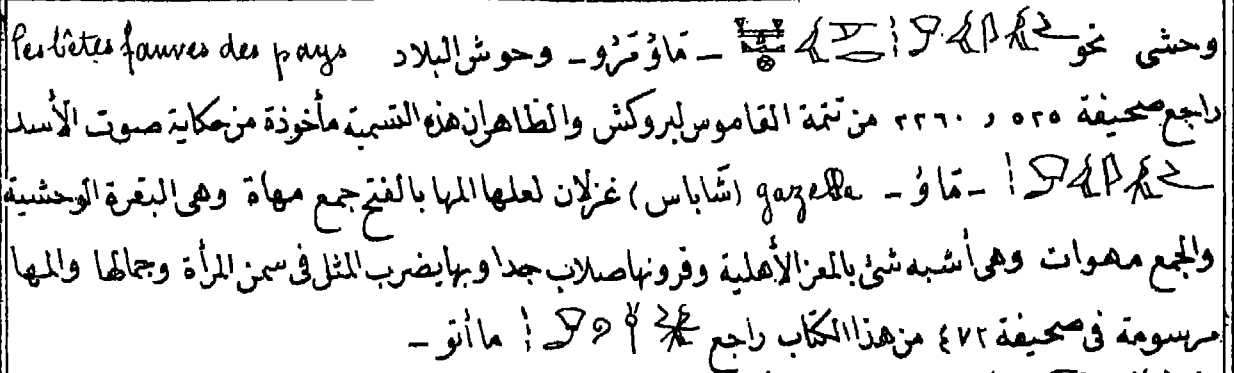 وحشى نحو ـ مَاوُ مَرُو ـ وحوش البلاد les bêtes fauves des pays
راجع صحيفة ٥٢٥ و ٢٢٦٠ من تتمة القاموس لبروكش والظاهر ان هذه التسمية مأخوذة من حكاية صوت الأسد
ـ مَاوُ ـ gazelle (شاباس) غزلان لعلها المها بالفتح جمع مهاة وهى البقرة الوحشية
والجمع مهوات وهى أشبه شئ بالمعز الأهلية وقرونها صلاب جدا وبها يضرب المثل فى سمن المرأة وجمالها والمها
مرسومة فى صحيفة ٤٧٢ من هذا الكتاب راجع ماأتو ـ